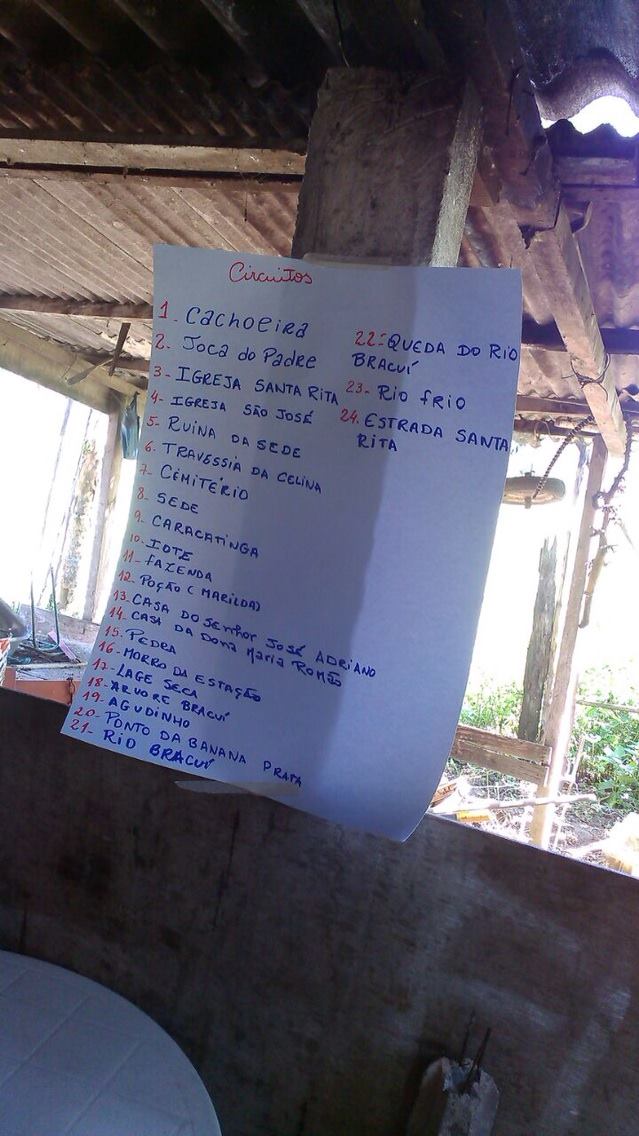 Circuitos
1- Cachoeira
2- Joca do Padre
3- IGREJA SANTA RITA
4- IGREJA SÃO JOSÉ
5- RUINA DA SEDE
6- TRAVESSIA DA CELINA
7- CEMITÉRIO
8- SEDE
9- CARACATINGA
10- IOTE
11- FAZENDA
12- POÇÃO (MARILDA)
13- CASA DO SENHOR JOSÉ ADRIANO
14- CASA DA DONA MARIA ROMÃO
15- PEDRA
16- MORRO DA ESTAÇÃO
17- LAGE SECA
18- ARVORE BRACUÍ
19- AGUDINHO
20- PONTO DA BANANA PRATA
21- RIO BRACUÍ
22- QUEDA DO RIO
BRACUÍ
23- RIO FRIO
24. ESTRADA SANTA
RITA